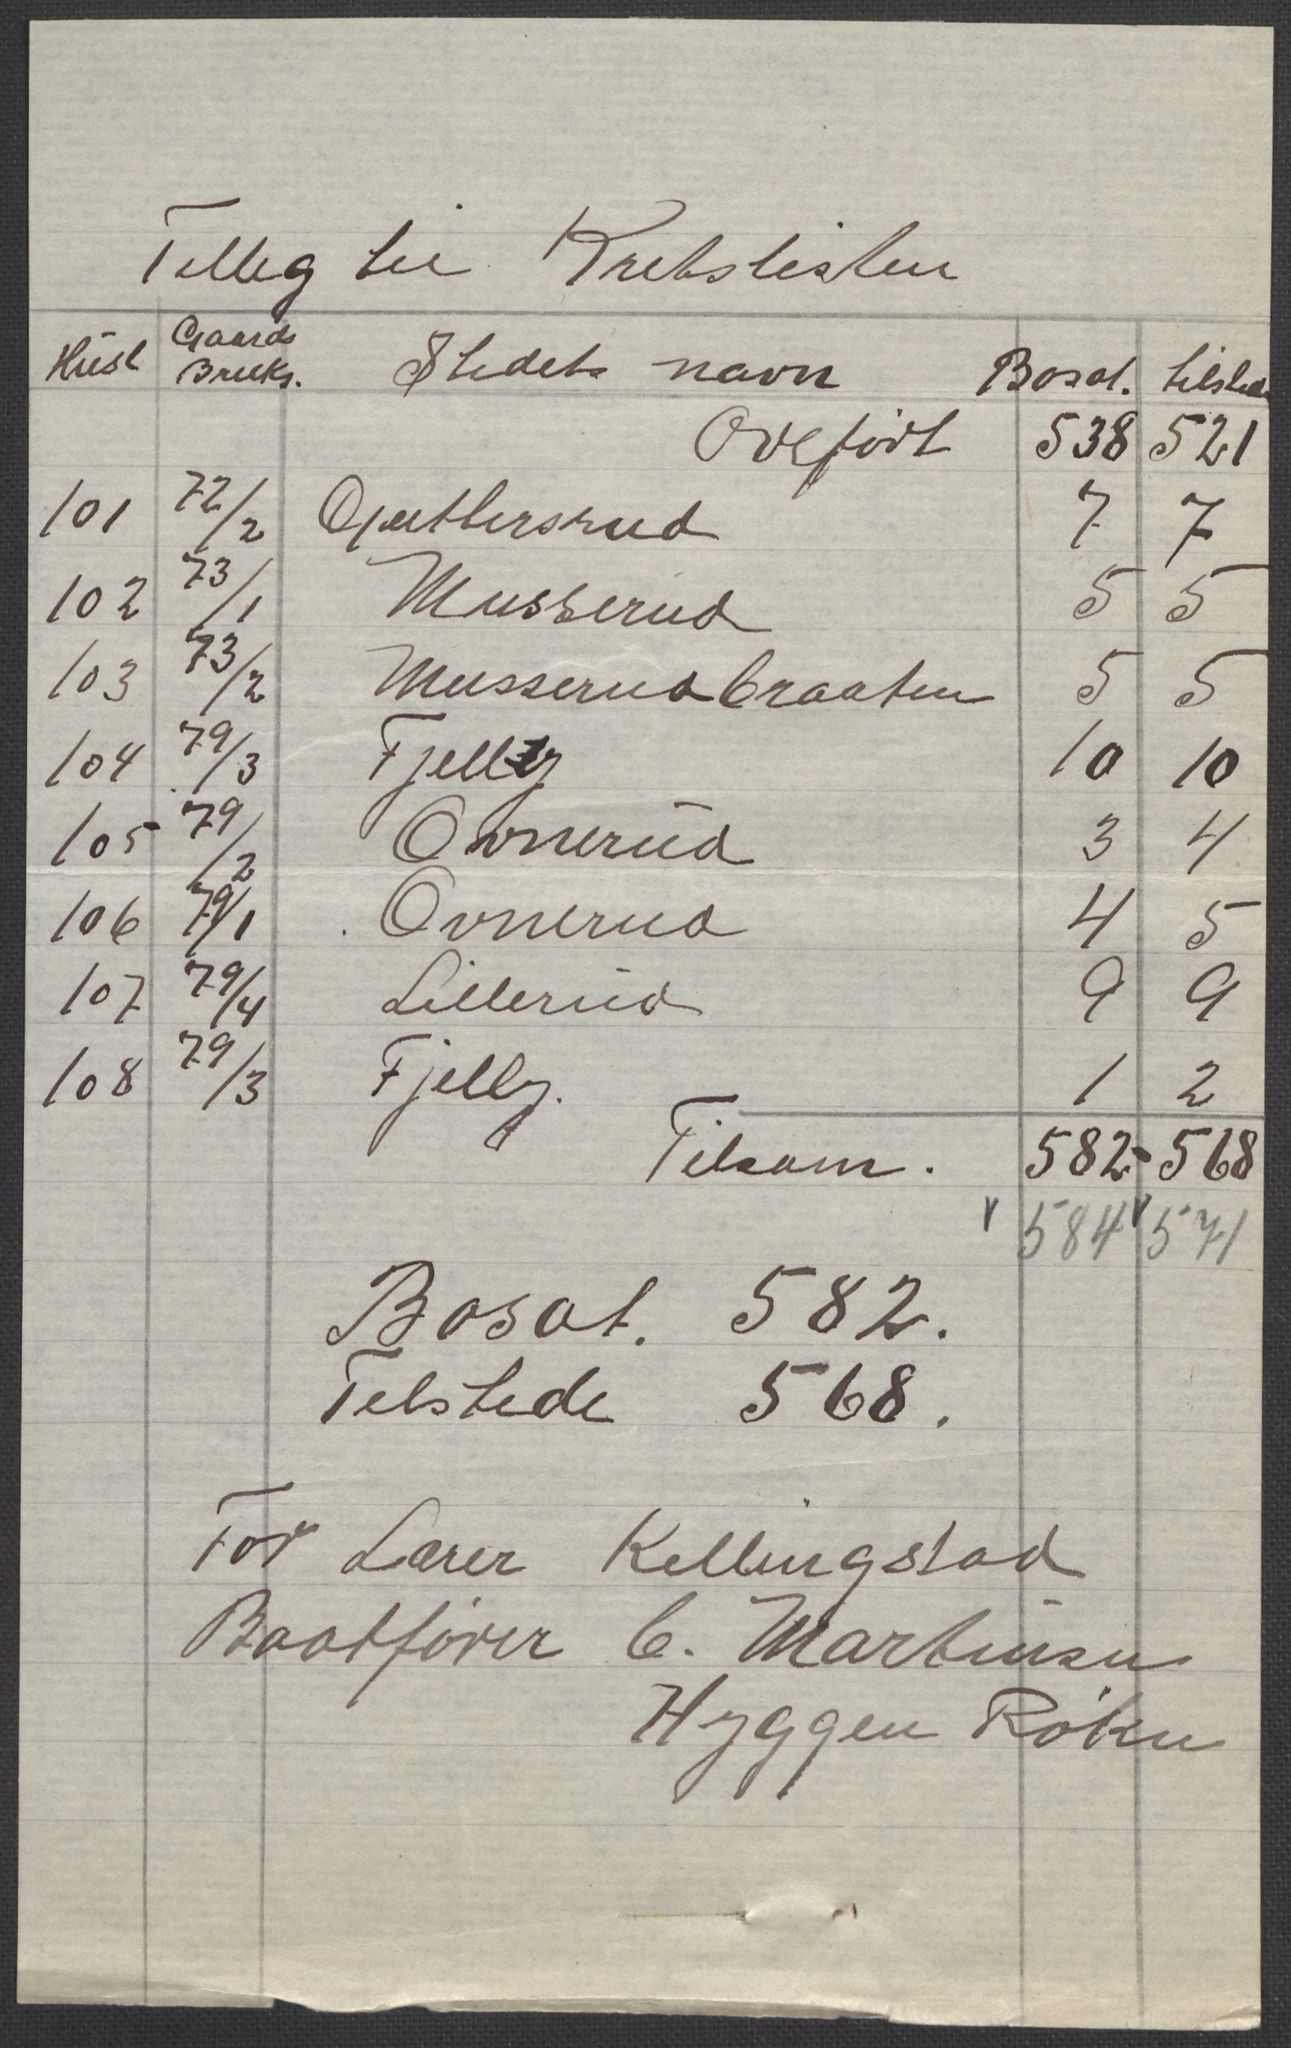 Tilleg til Kretslisten
Husl Gaards Bruks. Stedets navn Bosat. tilstede
Oveført 538 521
101 72/2 Gjetlersrud 7 7
102 73/1 Musserud 5 5
103 73/2 Musserudbraaten 5 5
104 79/3 Fjelly 10 10
105 79/2 Ovnerud 3 4
106 79/1 Ovnerud 4 5
107 79/4 Lillerud 9 9
108 79/3 Fjelly. 1 2
Tilsam. 582 - 568
584 571
Bosat. 582.
Tilstede 568.
For Lærer Kellingstad
Baatfører C. Martinsen
Hyggen Røken